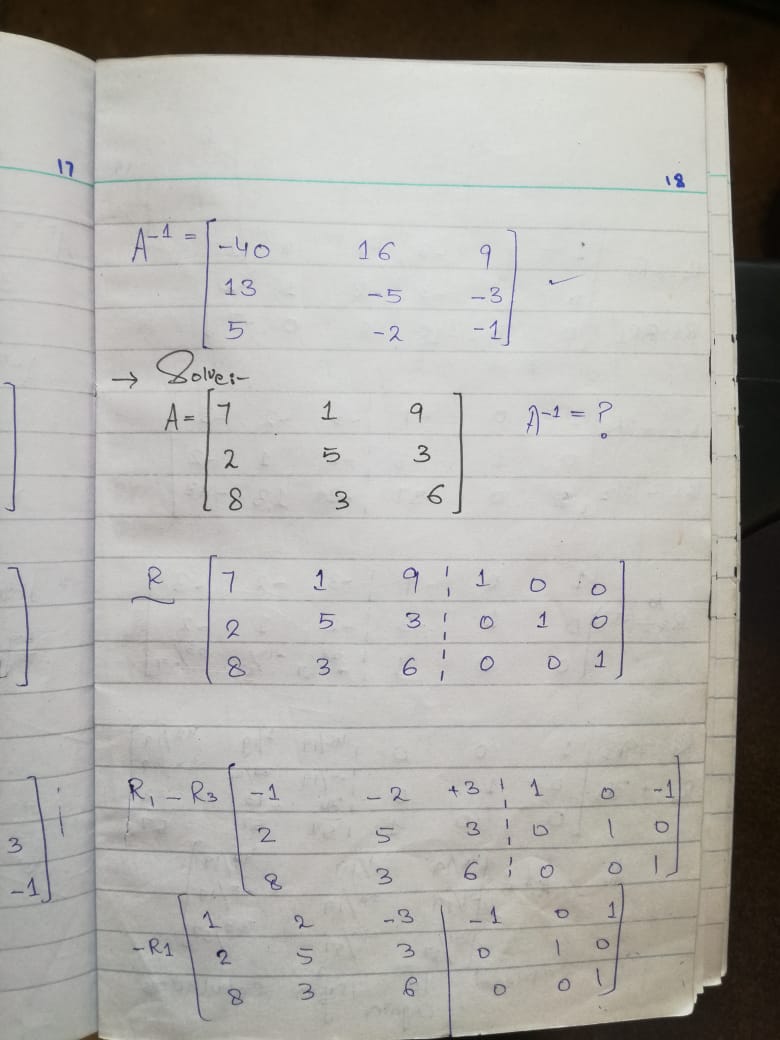 17
18
A⁻¹ = [ -40 16 9
13 -5 -3
5 -2 -1 ]
→ Solve:-
A = [ 7 1 9 A⁻¹ = ?
2 5 3
8 3 6 ]
R [ 7 1 9 ¦ 1 0 0
2 5 3 ¦ 0 1 0
8 3 6 ¦ 0 0 1 ]
R₁ - R₃ [ -1 -2 +3 ¦ 1 0 -1
2 5 3 ¦ 0 1 0
8 3 6 ¦ 0 0 1 ]
3
-1 ]
-R1 [ 1 2 -3 | -1 0 1
2 5 3 | 0 1 0
8 3 6 | 0 0 1 ]